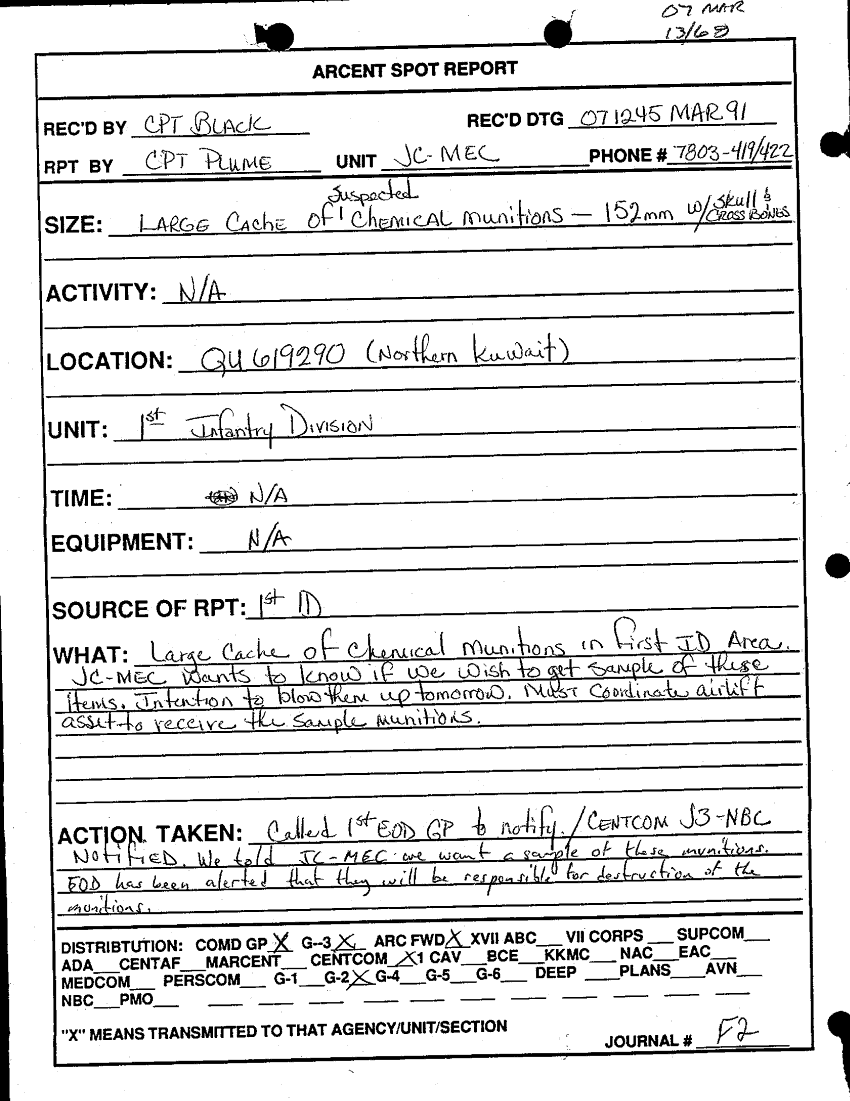 07 MAR
13/68
ARCENT SPOT REPORT
REC'D BY CPT BLACK REC'D DTG 071245 MAR 91
RPT BY CPT PLUME UNIT JC-MEC PHONE # 7803-419/422
suspected
SIZE: LARGE CACHE OF ' CHEMICAL MUNITIONS — 152mm w/ skull & CROSS BONES
ACTIVITY: N/A
LOCATION: QU 619290 (Northern Kuwait)
UNIT: 1st Infantry DIVISION
TIME: N/A
EQUIPMENT: N/A
SOURCE OF RPT: 1st ID
WHAT: Large Cache of Chemical munitions in First ID Area.
JC-MEC wants to know if we wish to get sample of these
items. Intention to blow them up tomorrow. Must Coordinate airlift
asset to receive the sample munitions.
ACTION TAKEN: Called 1st EOD GP to notify. / CENTCOM J3-NBC
NOTIFIED. We told JC-MEC we want a sample of these munitions.
EOD has been alerted that they will be responsible for destruction of the
munitions.
DISTRIBTUTION: COMD GP X G--3 X ARC FWD X XVII ABC___ VII CORPS ___ SUPCOM___
ADA___ CENTAF___ MARCENT___ CENTCOM X 1 CAV___ BCE___ KKMC___ NAC___ EAC___
MEDCOM___ PERSCOM___ G-1___ G-2 X G-4___ G-5___ G-6___ DEEP ___ PLANS___ AVN___
NBC___ PMO___
"X" MEANS TRANSMITTED TO THAT AGENCY/UNIT/SECTION
JOURNAL # F2